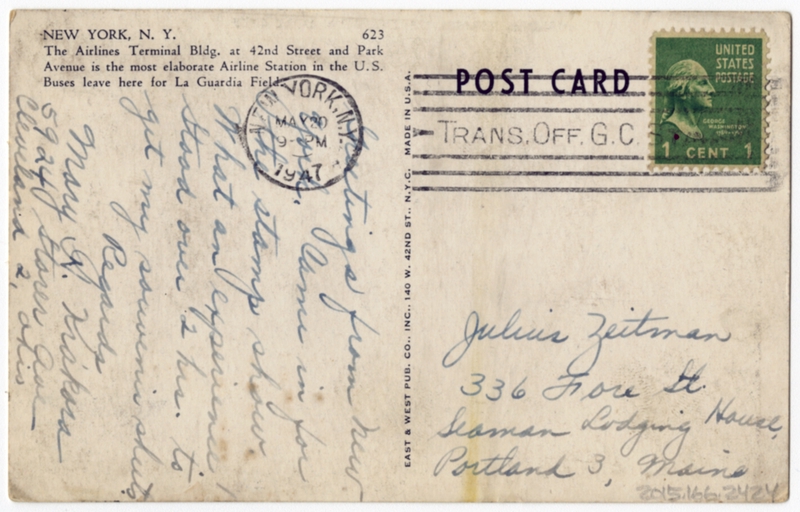 NEW YORK, N. Y. 623
The Airlines Terminal Bldg. at 42nd Street and Park
Avenue is the most elaborate Airline Station in the U. S.
Buses leave here for La Guardia Field.
Greetings from New
York. Came in for
the stamp show
What an experience!
Stood over 2 hrs. to
get my souvenir shuts
Regards
Mary R.
5924 Storer Ave
Cleveland 2, Ohio
EAST & WEST PUB. CO., INC., 140 W. 42ND ST., N.Y.C. MADE IN U.S.A.
POST CARD
NEW YORK, N.Y.
MAY 20
9 - PM
1947
TRANS. OFF. G.C.
UNITED
STATES
POSTAGE
GEORGE
WASHINGTON
1 CENT 1
Julius Zeitman
336 Fore St.
Seaman Lodging House,
Portland 3, Maine
2015.166.2424